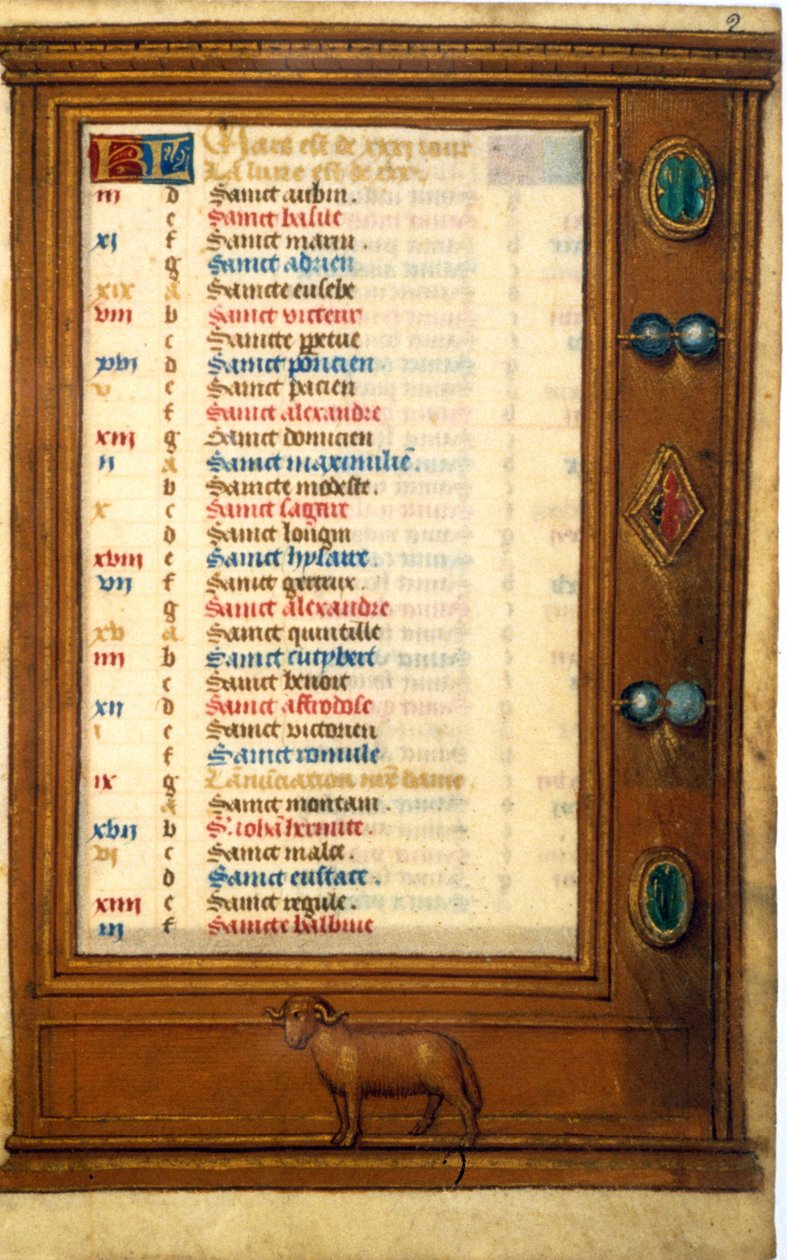 2
KL Mars est de xxxj iour
La lune est de xxx.
iij d Sainct aubin.
e Sainct basile
xj f Sainct marin.
g Sainct adrien
xix a Saincte eusebe
viij b Sainct victeur
c Saincte ppetue
xvj d Sainct poncien
v e Sainct pacien
f Sainct alexandre
xiij g Sainct domicien
ij a Sainct maximiliē.
b Saincte modeste.
x c Sainct
d Sainct longin
xviij e Sainct hylaire
vij f Sainct gertrux.
g Sainct alexandre
xv a Sainct quintille
iiij b Sainct cutybert
c Sainct benoit
xij d Sainct affrodose
i e Sainct victorien
f Sainct romule
ix g Lanūciation nrē dame.
a Sainct montain.
xvij b S. iohā hermite.
vj c Sainct malce.
d Sainct eustace.
xiiij e Sainct regule.
iij f Saincte balbine